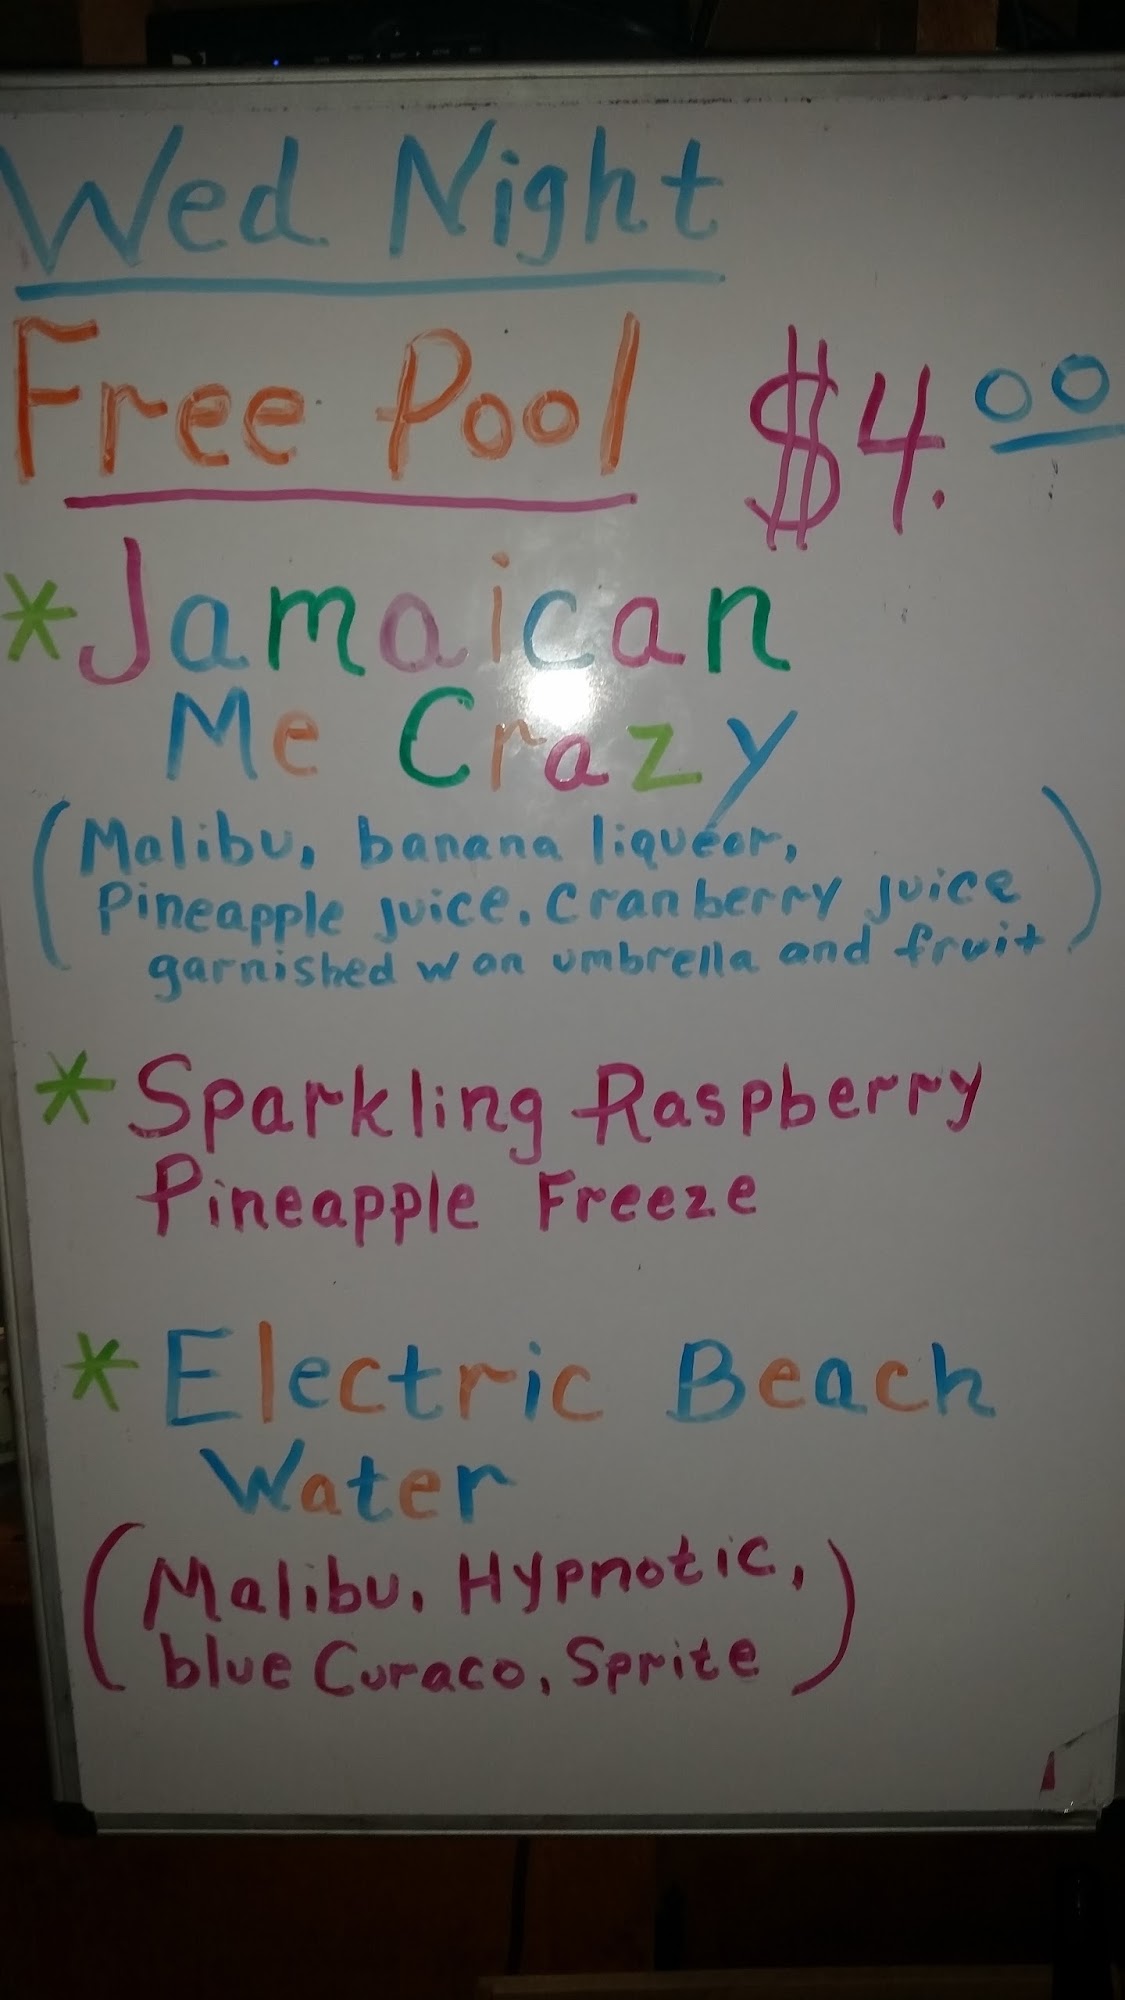 Wed Night
Free Pool $4.00
*Jamaican
Me Crazy
(Malibu, banana liqueor,
Pineapple juice, Cranberry juice
garnished w an umbrella and fruit)
* Sparkling Raspberry
Pineapple Freeze
* Electric Beach
Water
(Malibu, Hypnotic,
blue Curaco, Sprite)